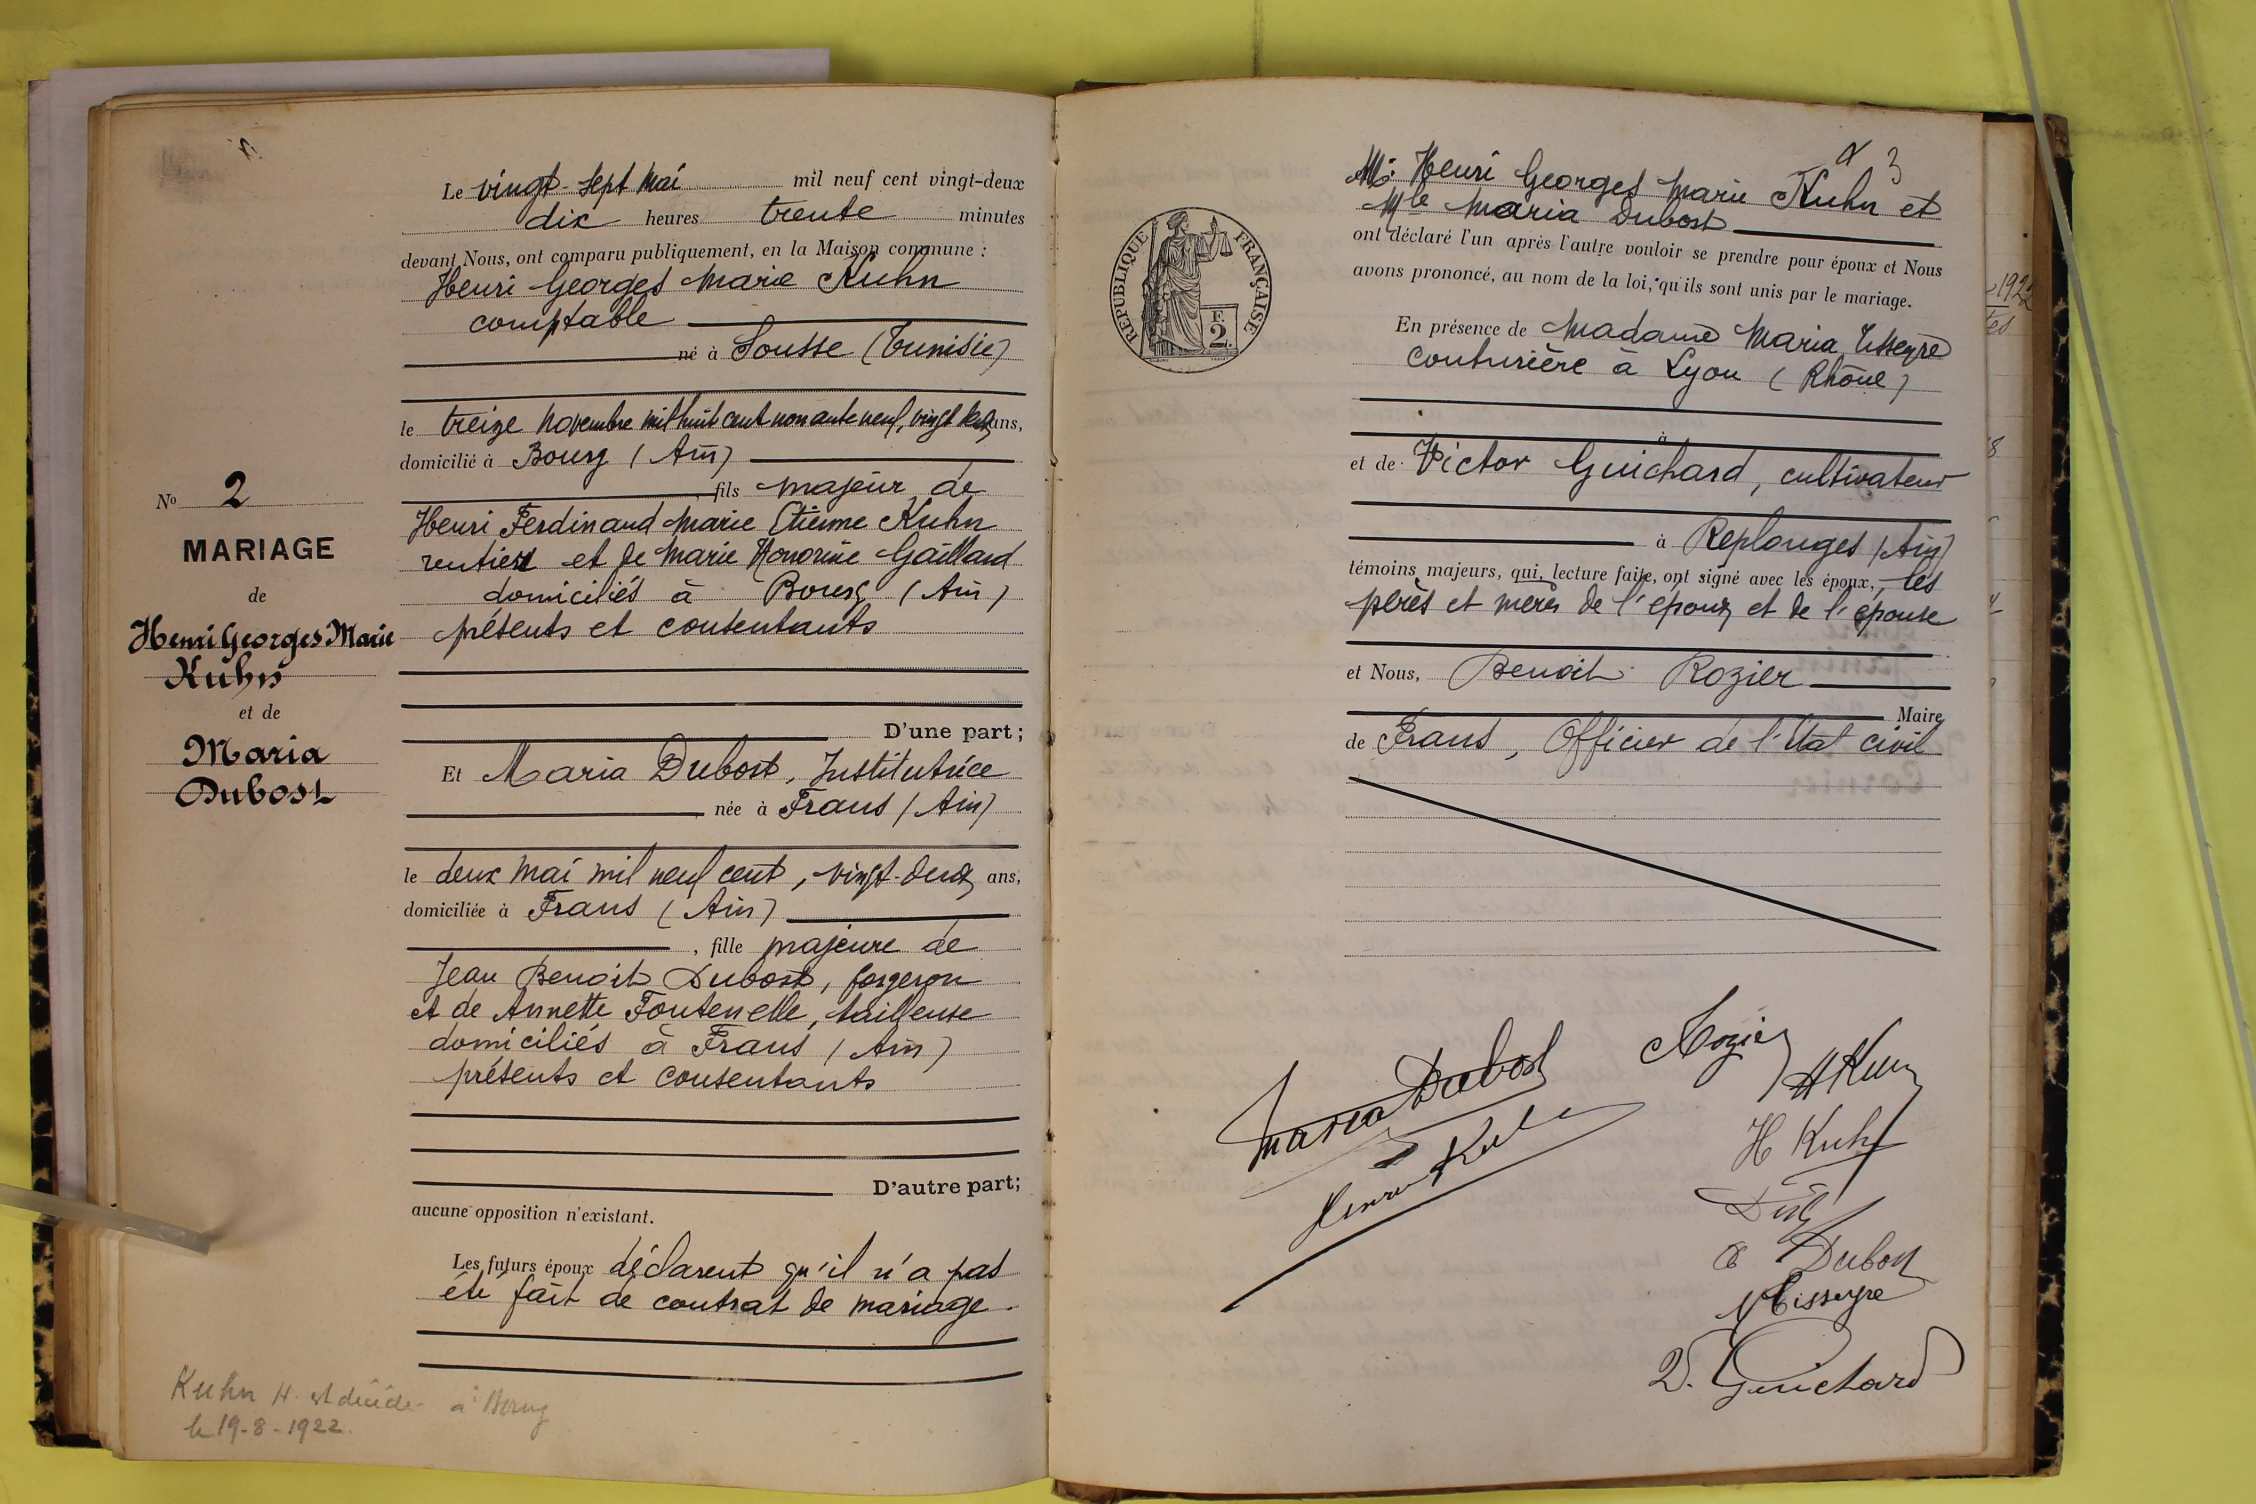 Le vingt-sept mai mil neuf cent vingt-deux
dix heures trente minutes
devant Nous, ont comparu publiquement, en la Maison commune :
Henri Georges Marie Kuhn
comptable
né à Sousse (Tunisie)
le treize novembre mil huit cent nonante neuf, vingt deux ans,
domicilié à Bourg (Ain)
, fils majeur de
Henri Ferdinand Marie Etienne Kuhn
rentier et de Marie Honorine Gaillard
domiciliés à Bourg (Ain)
présents et consentants
D'une part;
Et Maria Dubost, Institutrice
née à Frans (Ain)
le deux mai mil neuf cent, vingt-deux ans,
domiciliée à Frans (Ain)
, fille majeure de
Jean Benoit Dubost, forgeron
et de Annette Fontenelle, tailleuse
domiciliés à Frans (Ain)
présents et consentants
D'autre part;
aucune opposition n'existant.
Les futurs époux déclarent qu'il n'a pas
été fait de contrat de mariage.
No 2
MARIAGE
de
Henri Georges Marie
Kuhn
et de
Maria
Dubost
Kuhn H. est décédé à Bourg
le 19-8-1922.
3
Mr Henri Georges Marie Kuhn et
Mlle Maria Dubost
ont déclaré l'un après l'autre vouloir se prendre pour époux et Nous
avons prononcé, au nom de la loi, qu'ils sont unis par le mariage.
En présence de Madame Maria Tisseyre
couturière à Lyon (Rhône)
à
et de Victor Guichard, cultivateur
à Replonges (Ain)
témoins majeurs, qui, lecture faite, ont signé avec les époux, les
pères et mères de l'époux et de l'épouse
et Nous, Benoit Rozier
Maire
de Frans, Officier de l'Etat civil
RÉPUBLIQUE FRANÇAISE
F.
2.
Maria Dubost
Rozier
H Kuhn
Henri Kuhn
H Kuhn
Dubost
M Tisseyre
V. Guichard
1922